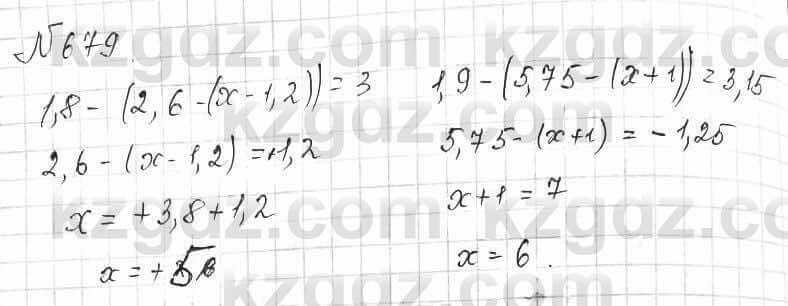 № 679.
1,8 - (2,6 - (x - 1,2)) = 3
2,6 - (x - 1,2) = -1,2
x = +3,8 + 1,2
x = +5
1,9 - (5,75 - (x + 1)) = 3,15
5,75 - (x + 1) = -1,25
x + 1 = 7
x = 6.
kzgdz.com kzgdz.com
kzgdz.com kzgdz.com
kzgdz.com kzgdz.com
kzgdz.com